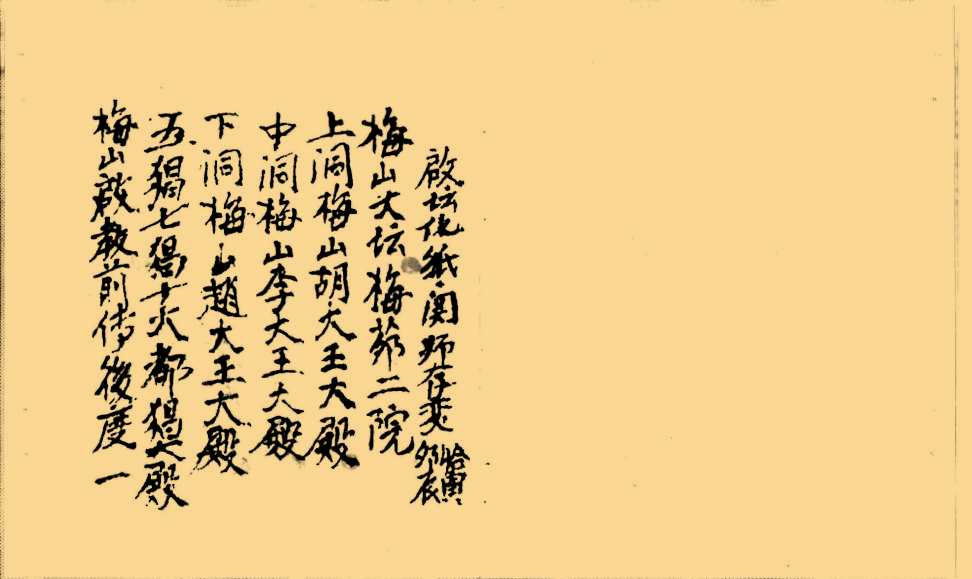 啟坛化紙関师存变
梅山大坛梅苑二院
上洞梅山胡大王大殿
中洞梅山李大王大殿
下洞梅山趙大王大殿
五猖七猖十大都猖大殿
梅山啟教前传後度一